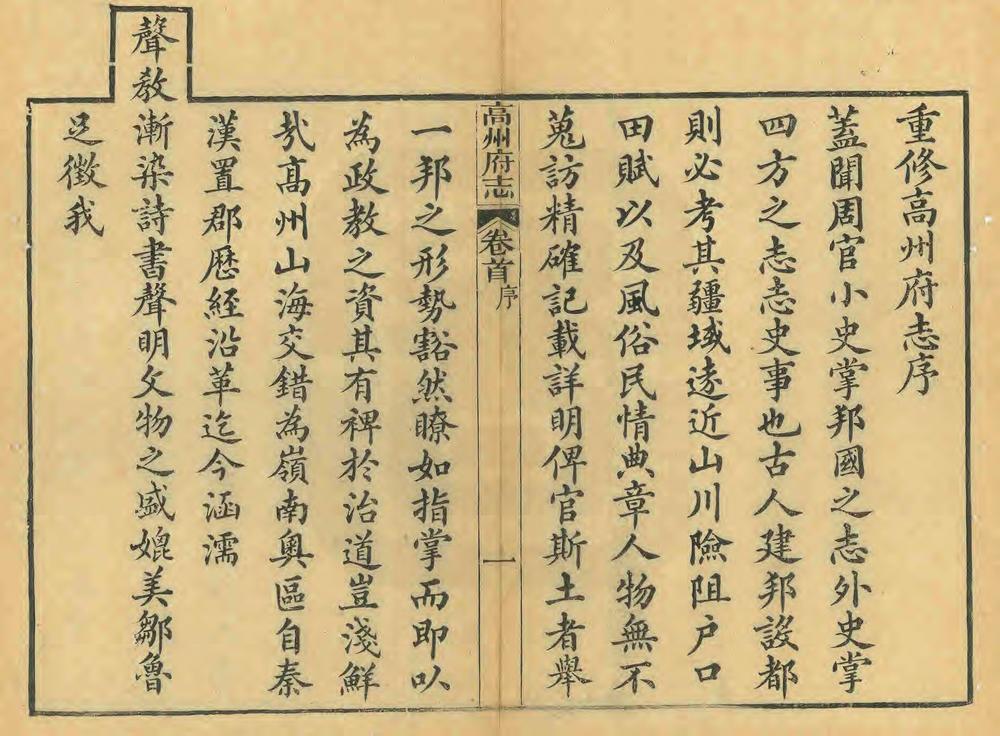 重修高州府志序
蓋聞周官小史掌邦國之志外史掌
四方之志志史事也古人建邦設都
則必考其疆域遠近山川險阻户口
田賦以及風俗民情典章人物無不
蒐訪精確記載詳明俾官斯土者舉
高州府志 卷首 序 一
一邦之形勢豁然瞭如指掌而即以
為政教之資其有裨於治道豈淺鮮
㢤高州山海交錯為嶺南奧區自秦
漢置郡歷經沿革迄今涵濡
聲教漸染詩書聲明文物之盛媲美鄒魯
足徵我